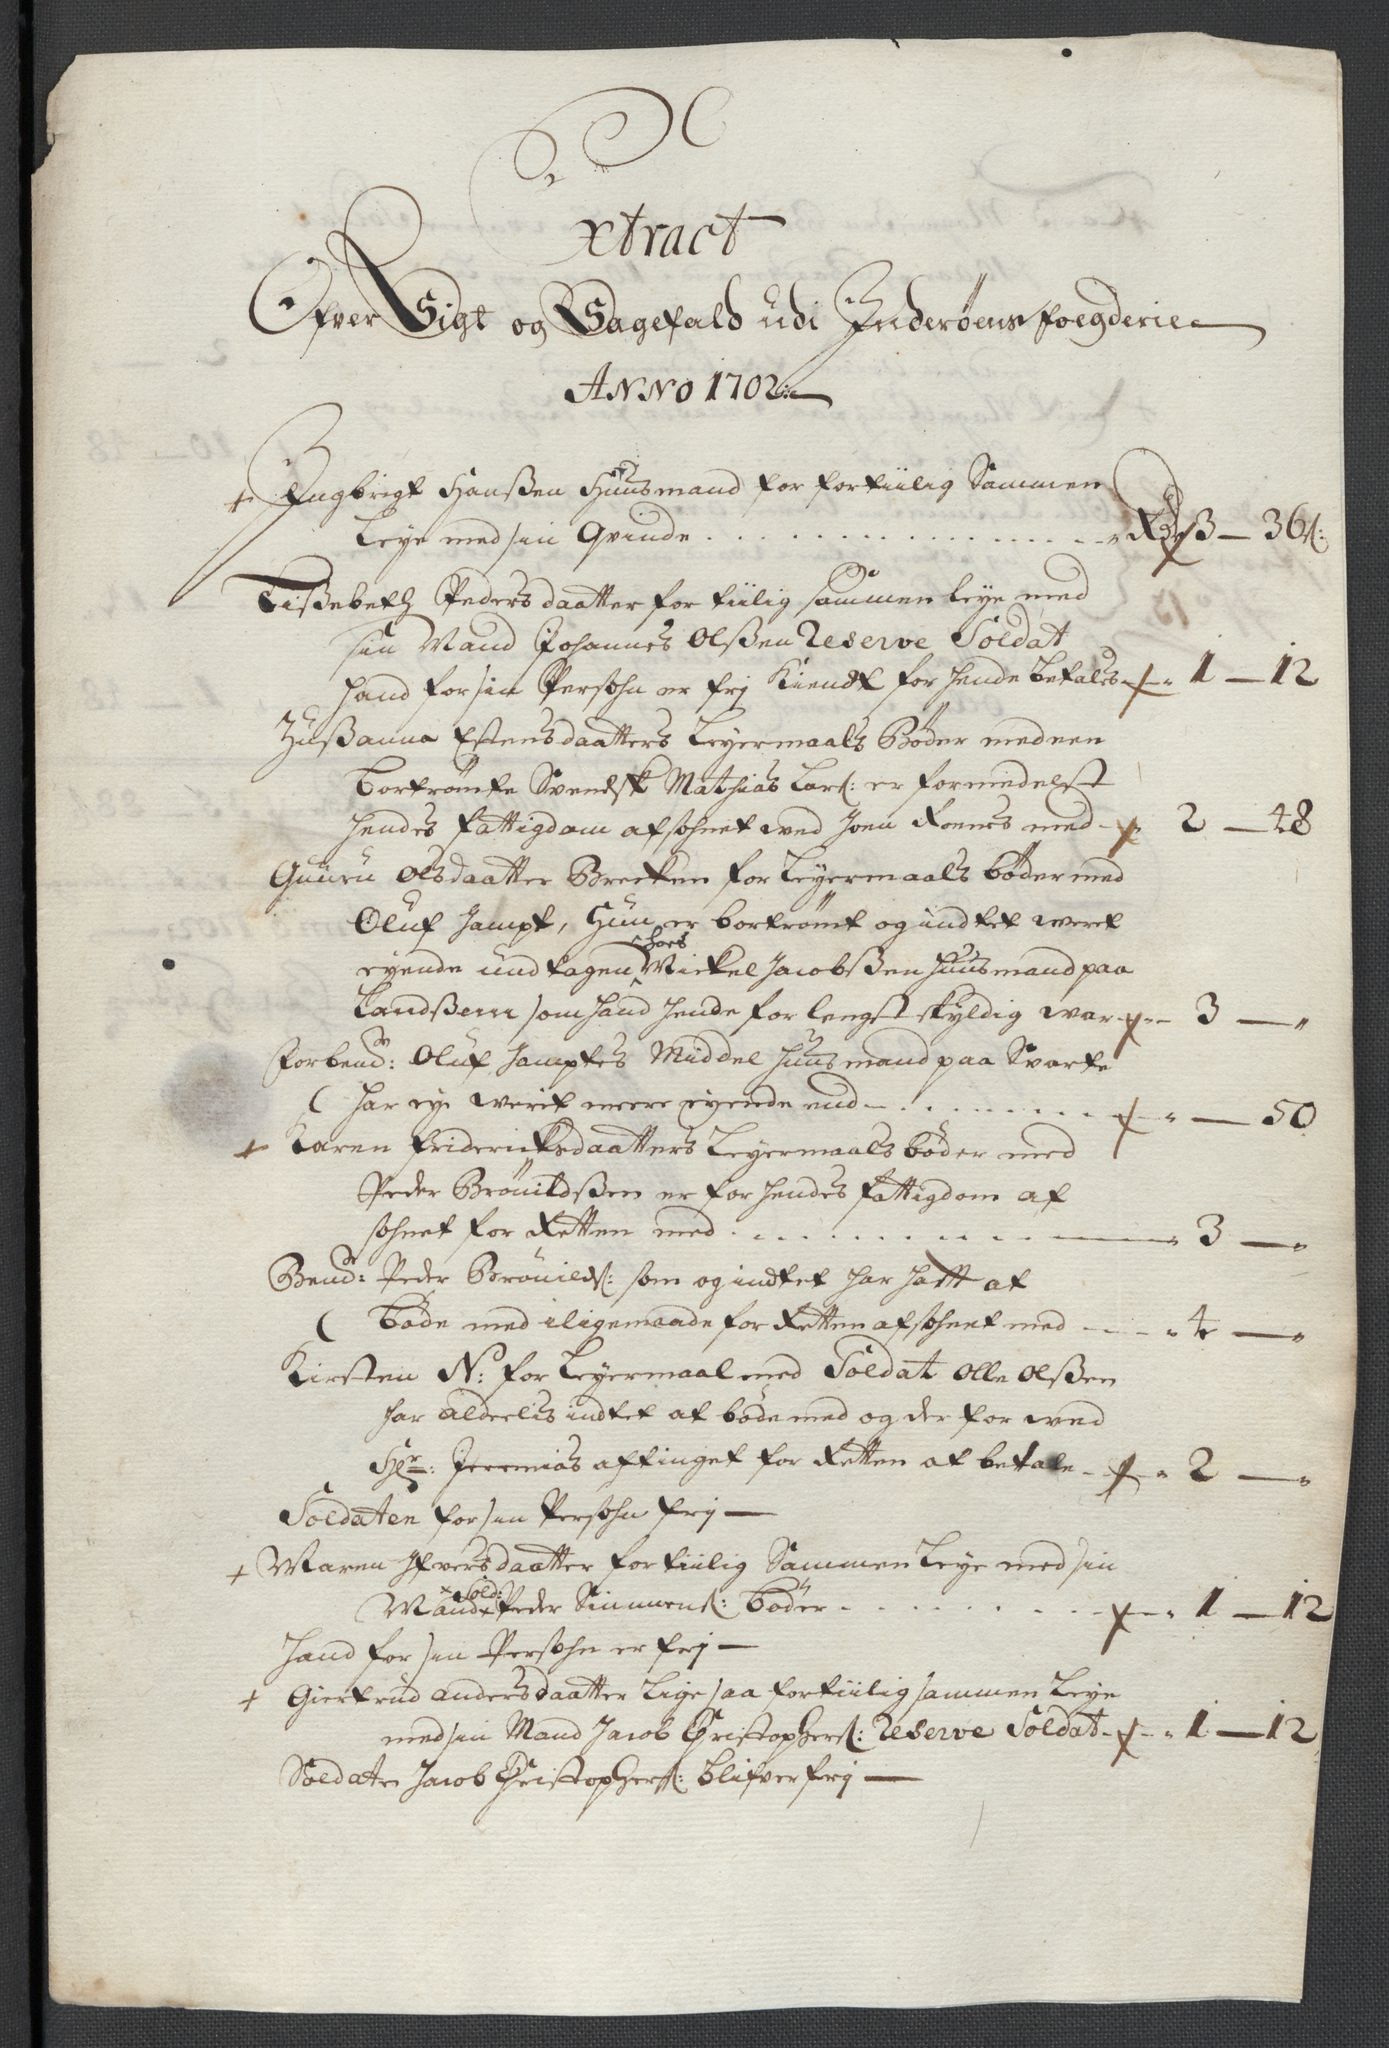 Extract
Ofver Sigt og Sagefald udi Inderöens foegderie
ANNO 1702:
+ Engbrigt Hanßen Huusmand for fortiilig Sammen
Leye med sin Qvinde . . . . . . . . Rdr 3 — 36 s:
Lißebeth Peders daatter for tiilig sammen leye med
sin Mand Johannes Olßen Reserve Soldat
hand for sin Persohn er frj Kiendt for hende betales — 1 — 12
Zußanna Estensdaatters Leyermaals Bøder med en
bortrömte Svendsk Mathias Lars: er formedelst
hendes fattigdom afsohnet ved Joen Roenes med — 2 — 48
Guuru Olsdaatter Brecken for Leyermaals bøder med
Oluf Jampt, Hun er bortrömt og indtet weret
eyende undtagen hoes Mickel Jacobßen huusmand paa
Landßem som hand hende for lengst skyldig war — 3 — "
Forbend: Oluf Jamptes Middel huusmand paa Svarte
har ey werit meere eyende end — . . . . . . " — 50
+ Karen Friderichsdaatters Leyermaals bøder med
Peder Brönildßen er for hendes fattigdom af
sohnet for Retten med . . . . . . . . " 3 — "
Bend: Peder Brönilds: som og indtet har hatt at
bøde med iligemaade for Retten afsohnet med — — " 4 — "
Kirsten N: for Leyermaal med Soldat Olle Olßen
har alderlis indtet at bøde med og der for ved
Hr: Jeremias aftinget for Retten at betale — " 2 — "
Soldaten for sin Persohn frj —
+ Maren Ifversdaatter for tiilig Sammen Leye med sin
Mand Sold: Peder Simmens: bøder . . . . . . " 1 — 12
hand for sin Persohn er frj —
+ Giertrud Andersdaatter lige saa for tiilig sammen Leye
med sin Mand Jacob Christophers: Reserve Soldat — " 1 — 12
Soldate Jacob Christophers: blifver frj —